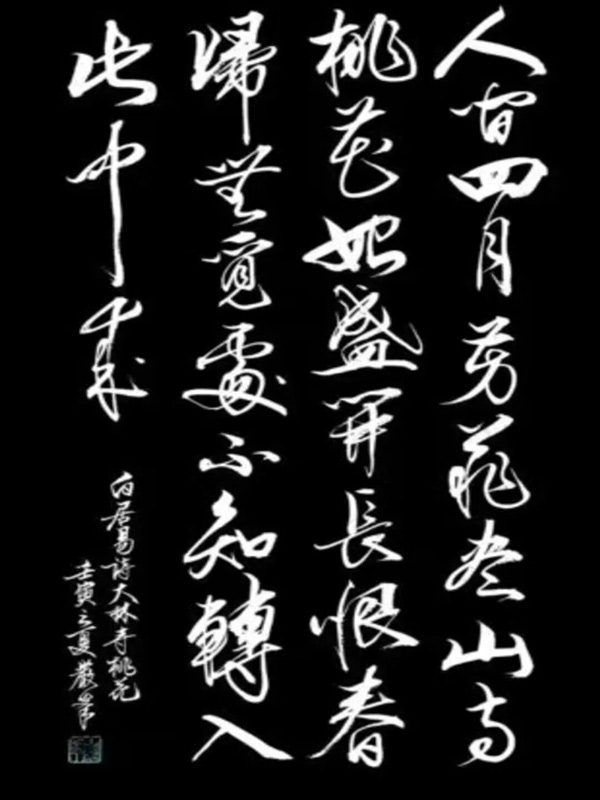 人間四月芳菲尽山寺
桃花始盛開長恨春
歸無覓處不知轉入
此中來
白居易詩大林寺桃花
壬寅之夏嚴筆